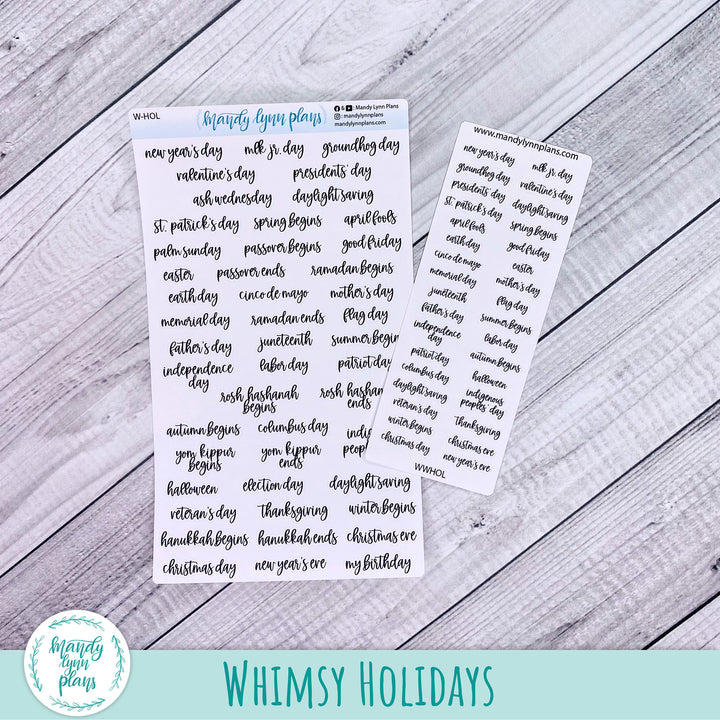 W-HOL
mandy lynn plans
& : Mandy Lynn Plans
: mandylynnplans
mandylynnplans.com
new year's day mlk jr. day groundhog day
valentine's day presidents' day
ash wednesday daylight saving
st. patrick's day spring begins april fools
palm sunday passover begins good friday
easter passover ends ramadan begins
earth day cinco de mayo mother's day
memorial day ramadan ends flag day
father's day juneteenth summer begins
independence day labor day patriot day
rosh hashanah begins rosh hashanah ends
autumn begins columbus day
yom kippur begins yom kippur ends
halloween election day daylight saving
veteran's day thanksgiving winter begins
hanukkah begins hanukkah ends christmas eve
christmas day new year's eve my birthday
www.mandylynnplans.com
new year's day mlk jr. day
groundhog day valentine's day
presidents' day daylight saving
st. patrick's day spring begins
april fools good friday
earth day easter
cinco de mayo mother's day
memorial day flag day
juneteenth summer begins
father's day labor day
independence day autumn begins
patriot day halloween
columbus day indigenous peoples' day
daylight saving thanksgiving
veteran's day christmas eve
winter begins new year's eve
christmas day
WWHOL
mandy
lynn
plans
Whimsy Holidays